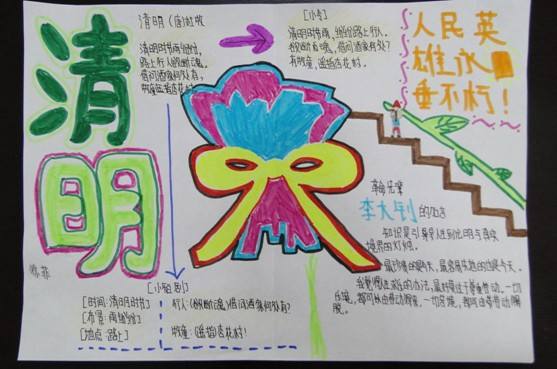 清明
清明 (唐)杜牧
清明时节雨纷纷,
路上行人欲断魂。
借问酒家何处有,
牧童遥指杏花村。
[小令]
清明时节雨,纷纷路上行人,
欲断魂。借问酒家何处?
有牧童,遥指杏花村。
人民英
雄永
垂不朽!
李大钊的名言
知识是引导人生到光明与真实
境界的灯烛。
[小短剧]
[时间:清明时节]
[布景:雨纷纷]
[地点:路上]
行人:(欲断魂)借问酒家何处有?
牧童:(遥指)杏花村!